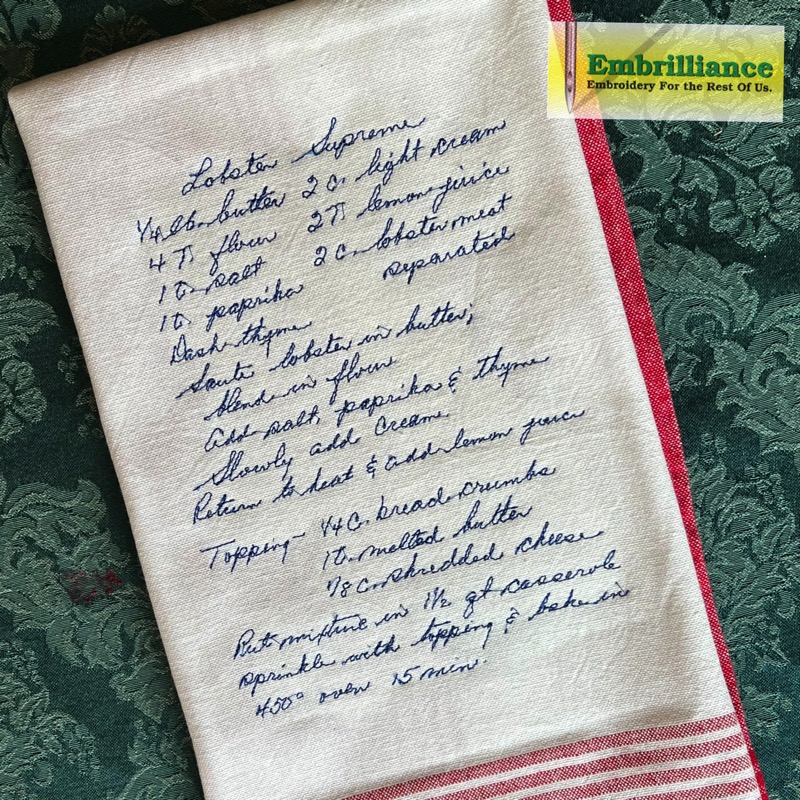 Embrilliance
Embroidery For the Rest Of Us.
Lobster Supreme
1/4 lb. butter 2 c. light cream
4 T. flour 2 T. lemon juice
1 t. salt 2 c. lobster meat
1 t. paprika separated
Dash thyme
Saute lobster in butter;
blend in flour
Add salt, paprika & thyme
Slowly add cream
Return to heat & add lemon juice
Topping - 1/4 C. bread crumbs
1 t. melted butter
1/8 c. shredded cheese
Put mixture in 1 1/2 qt casserole
sprinkle with topping & bake in
450° oven 15 min.